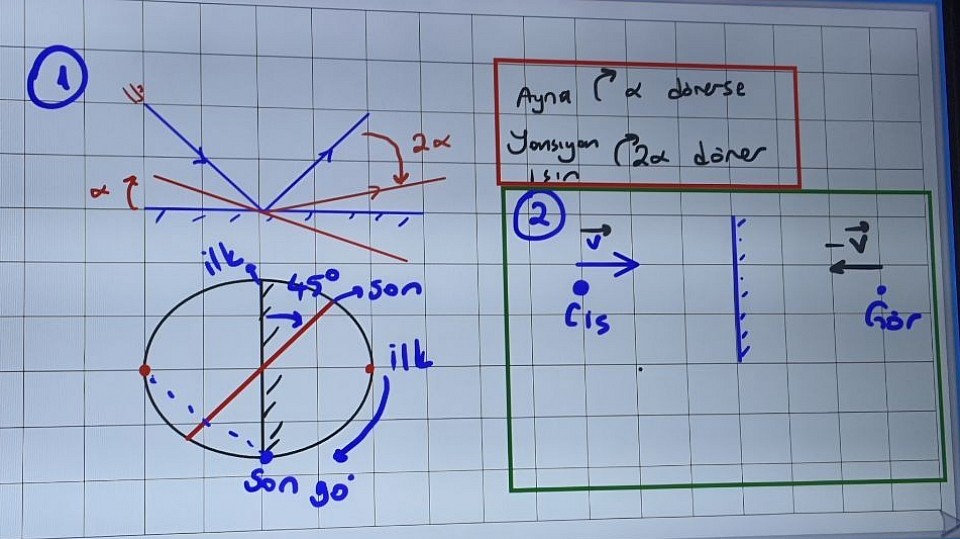 1
2α
α
Ayna α dönerse
Yansıyan 2α döner
ışın
ilk
45°
son
ilk
Son 90°
2
V
Cis
-V
Gör